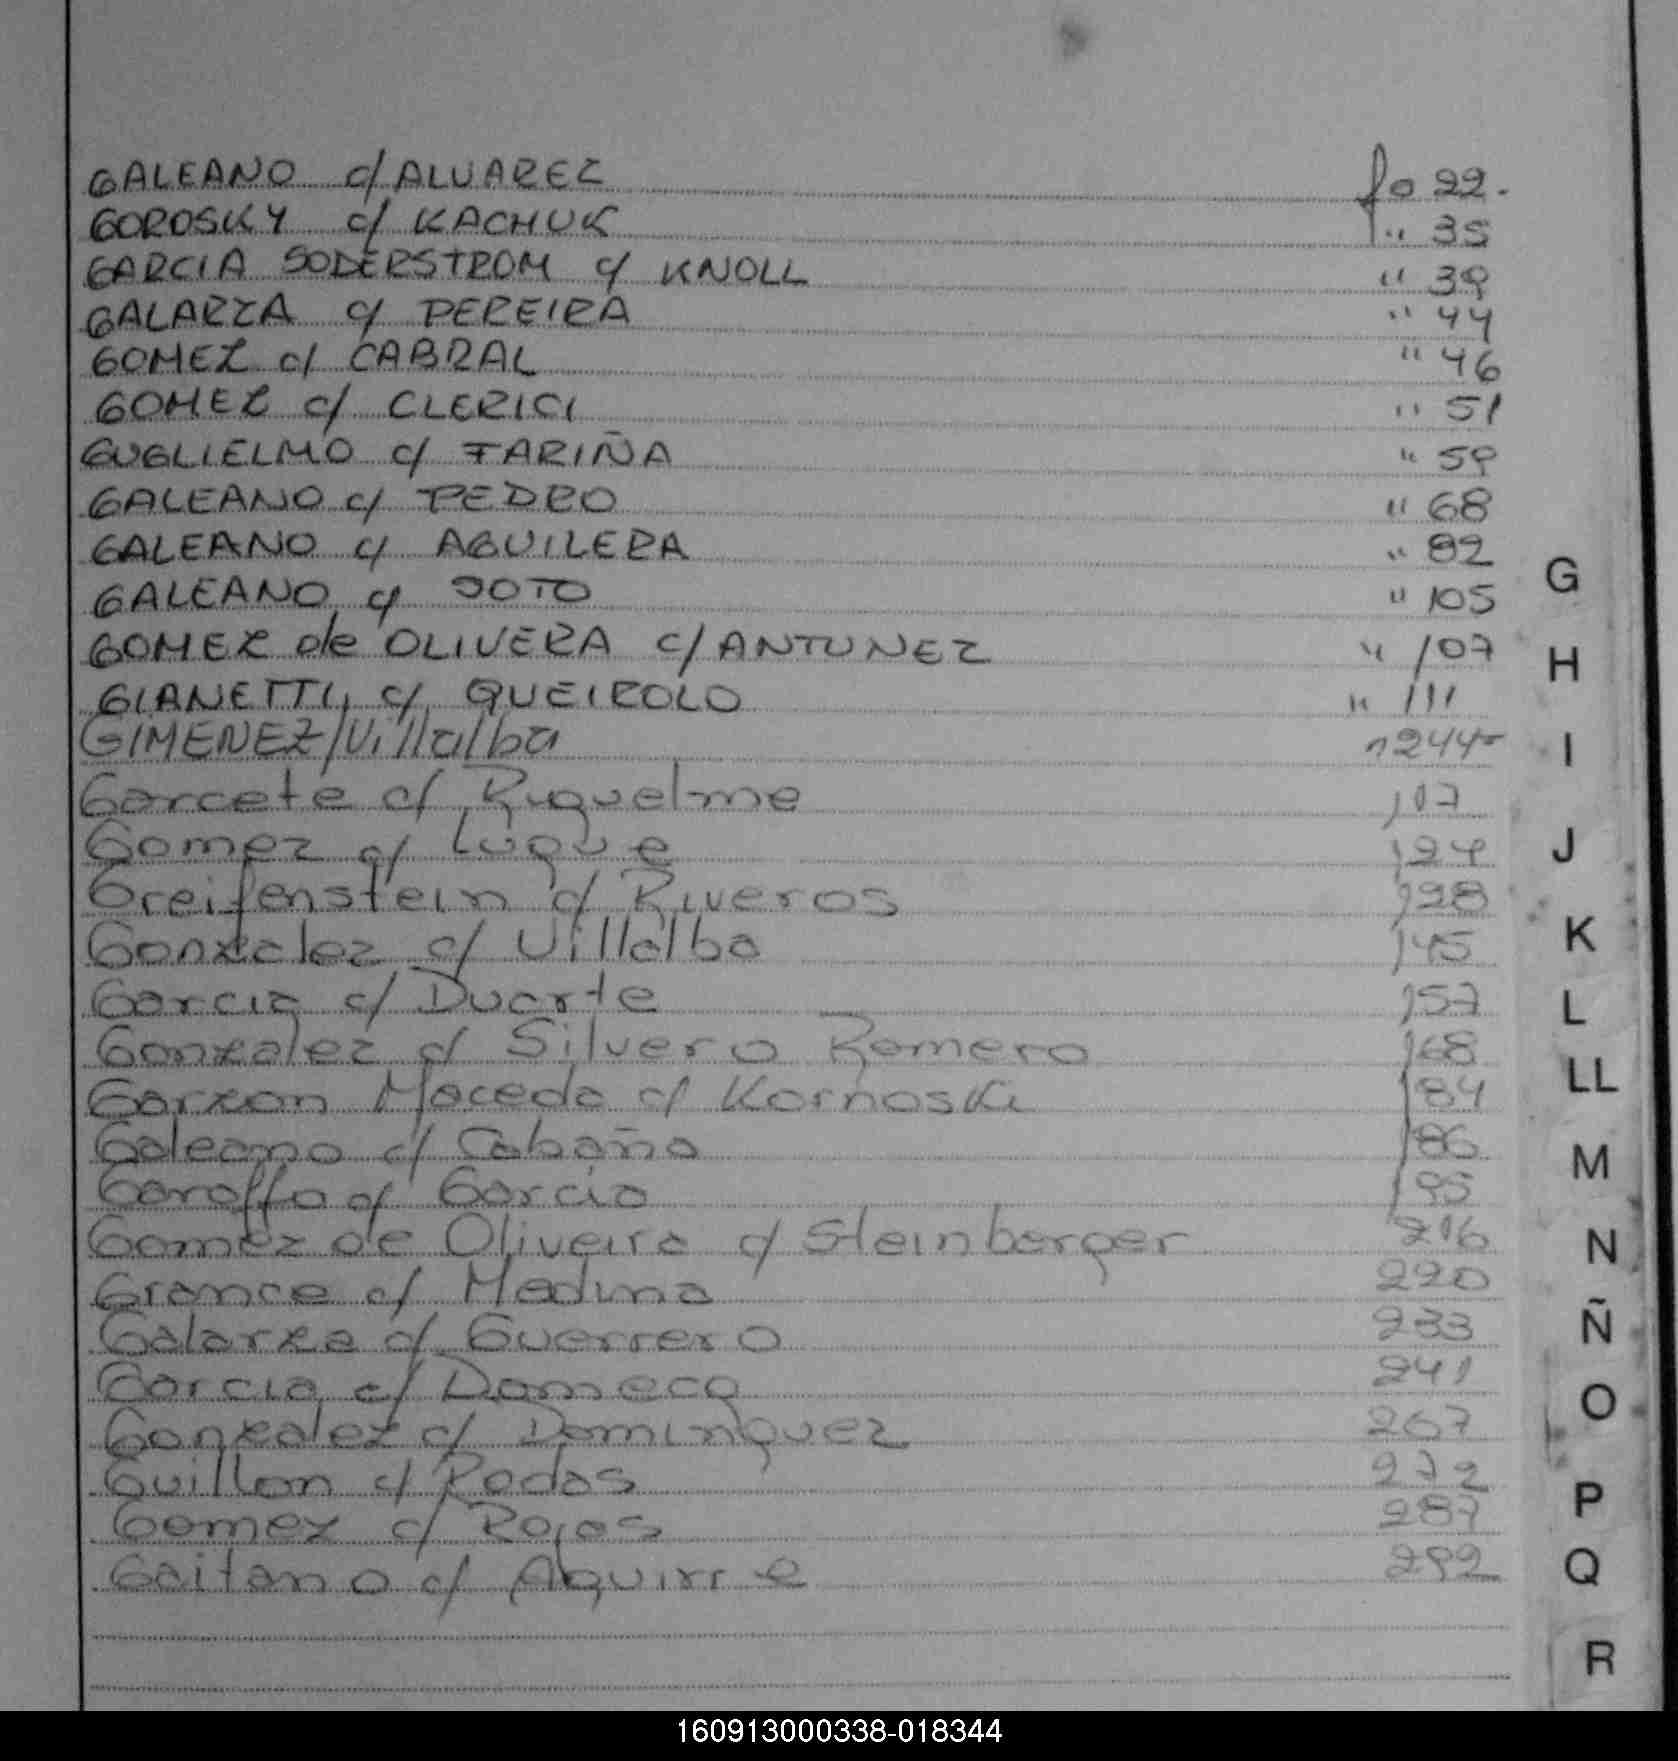 GALEANO c/ ALVAREZ fo 22.
GOROSKY c/ KACHUK " 35
GARCIA SODERSTROM c/ KNOLL " 39
GALARZA c/ PEREIRA " 44
GOMEZ c/ CABRAL " 46
GOMEZ c/ CLERICI " 51
GUGLIELMO c/ FARIÑA " 59
GALEANO c/ PEDRO " 68
GALEANO c/ AGUILERA " 82
GALEANO c/ SOTO " 105
GOMEZ de OLIVERA c/ ANTUNEZ " 107
GIANETTI c/ QUEIROLO " 111
GIMENEZ/Villalba " 244-
Garcete c/ Riquelme 117
Gomez c/ Luque 124
Greifenstein c/ Riveros 128
Gonzalez c/ Villalba 145
Garcia c/ Duarte 157
Gonzalez c/ Silvero Romero 168
Garzon Maceda c/ Kornoski 184
Galeano c/ Cabaña 186
Garoffo c/ Garcia 195
Gomez de Oliveira c/ Steinberger 216
Grance c/ Medina 220
Galarza c/ Guerrero 233
Garcia c/ Domecq 241
Gonzalez c/ Dominguez 267
Guillon c/ Rodas 272
Gomez c/ Rojas 287
Gaitano c/ Aguirre 292
G
H
I
J
K
L
LL
M
N
Ñ
O
P
Q
R
160913000338-018344